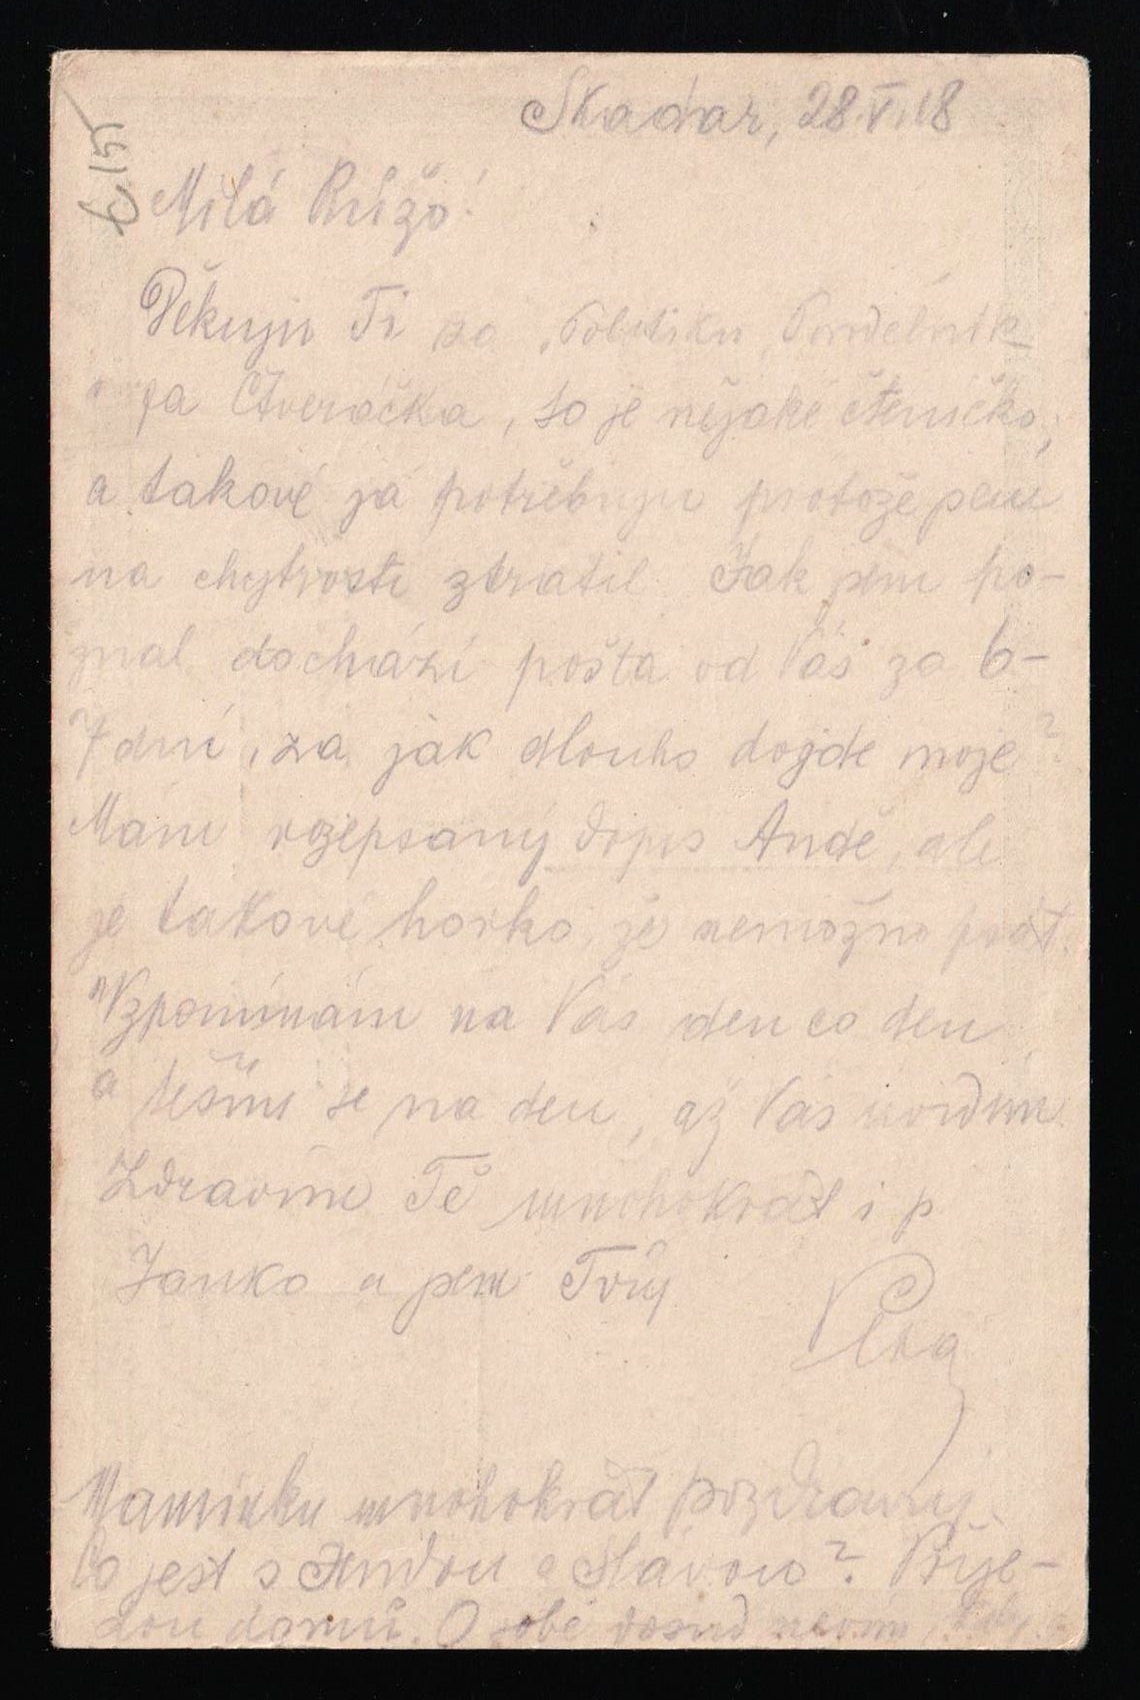 Skadar, 28.V.18
6.15
Milá Růžo!
Děkuju Ti za "Politiku, Pondělník
za Čtveráčka, to je nějaké čteníčko,
a takové já potřebuju protože jsem
na chytrosti ztratil. Jak jsem po-
znal dochází pošta od Vás za 6-
7 dní, za jak dlouho dojde moje?
Mám rozepsaný dopis Andě, ale
je takové horko, že nemožno psát.
Vzpomínám na Vás den co den
a těším se na den, až Vás uvidím
Zdravím Tě mnohokrát i p
Janko a jsem Tvůj
Maminku mnohokrát pozdravuj.
Co jest s Jendou a Slávou? Přije-
dou domů. O sobě dosud nevím,